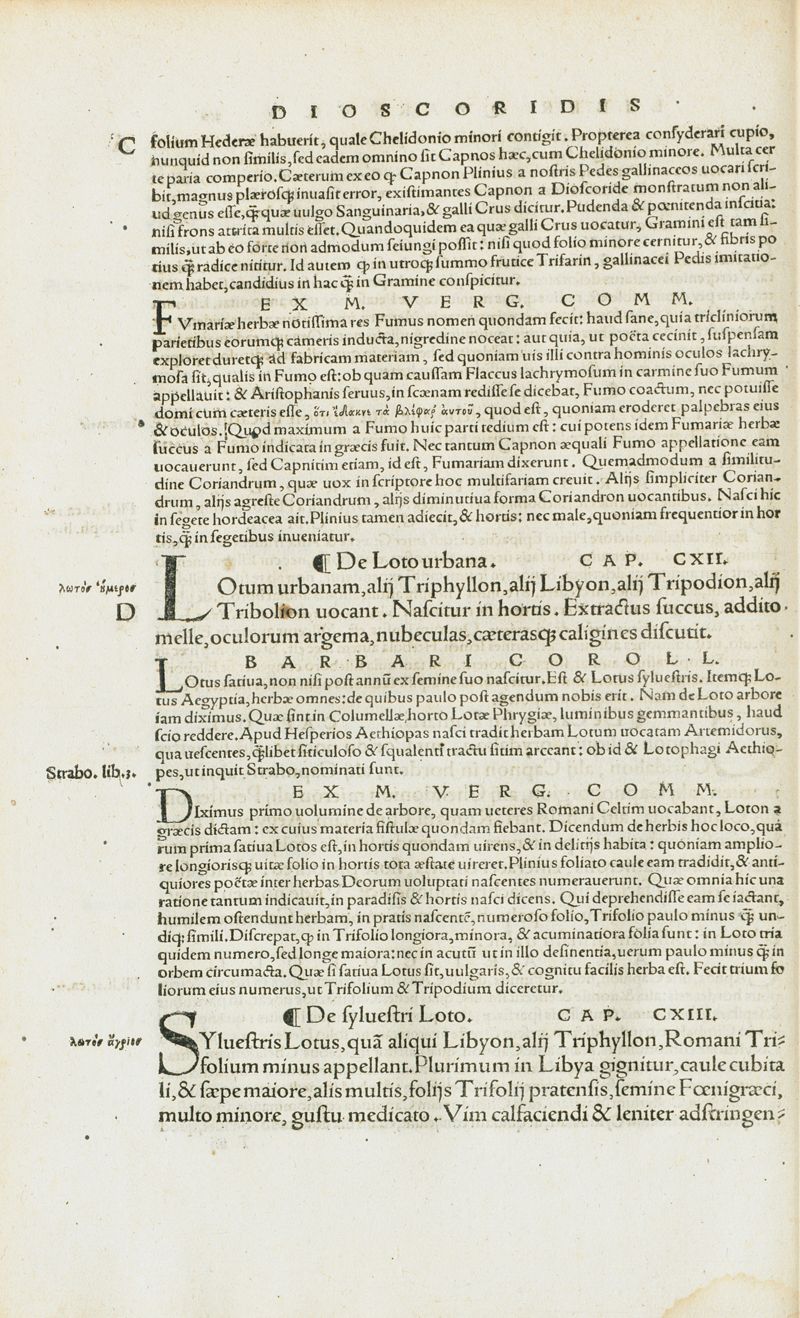 DIOSCORIDIS
C
folium Hederæ habuerit, quale Chelidonio minori contigit. Propterea conſyderari cupio,
nunquid non ſimilis, ſed eadem omnino ſit Capnos hæc, cum Chelidonio minore. Multa cer
te paria comperio. Cæterum ex eo ꝙ Capnon Plinius a noſtris Pedes gallinaceos uocari ſcri-
bit, magnus plæroſqꝫ inuaſit error, exiſtimantes Capnon a Dioſcoride monſtratum non ali-
ud genus eſſe, ꝙ̃ quæ uulgo Sanguinaria, & galli Crus dicitur. Pudenda & pœnitenda inſcitia:
niſi frons attrita multis eſſet. Quandoquidem ea quæ galli Crus uocatur, Gramini eſt tam ſi-
milis, ut ab eo forte non admodum ſeiungi poſſit: niſi quod folio minore cernitur, & fibris po
tius ꝙ̃ radice nititur. Id autem ꝙ in utroqꝫ ſummo frutice Trifarin, gallinacei Pedis imitatio-
nem habet, candidius in hac ꝙ̃ in Gramine conſpicitur.
EXM. VERG. COMM.
FVmariæ herbæ notiſſima res Fumus nomen quondam fecit: haud ſane, quia tricliniorum
parietibus eorumqꝫ cameris inducta, nigredine noceat: aut quia, ut poëta cecinit, ſuſpenſam
exploret duretqꝫ ad fabricam materiam, ſed quoniam uis illi contra hominis oculos lachry-
moſa ſit, qualis in Fumo eſt: ob quam cauſſam Flaccus lachrymoſum in carmine ſuo Fumum
appellauit: & Ariſtophanis ſeruus, in ſcænam rediſſe ſe dicebat, Fumo coactum, nec potuiſſe
domi cum cæteris eſſe, quod eſt, quoniam eroderet palpebras eius
& oculos. Quod maximum a Fumo huic parti tedium eſt: cui potens idem Fumariæ herbæ
ſuccus a Fumo indicata in græcis fuit. Nec tantum Capnon æquali Fumo appellatione eam
uocauerunt, ſed Capnitim etiam, id eſt, Fumariam dixerunt. Quemadmodum a ſimilitu-
dine Coriandrum, quæ uox in ſcriptore hoc multifariam creuit. Alijs ſimpliciter Corian-
drum, alijs agreſte Coriandrum, alijs diminutiua forma Coriandron uocantibus. Naſci hic
in ſegete hordeacea ait. Plinius tamen adiecit, & hortis: nec male, quoniam frequentior in hor
tis, ꝙ̃ in ſegetibus inueniatur.
¶ De Loto urbana. CAP. CXII.
λωτὸς ἥμερος
D
LOtum urbanam, alij Triphyllon, alij Libyon, alij Tripodion, alij
Tribolion uocant. Naſcitur in hortis. Extractus ſuccus, addito
melle, oculorum argema, nubeculas, cæterasqꝫ caligines diſcutit.
BARBARI COROLL.
LOtus ſatiua, non niſi poſt annũ ex ſemine ſuo naſcitur. Eſt & Lotus ſylueſtris. Itemqꝫ Lo-
tus Aegyptia, herbæ omnes: de quibus paulo poſt agendum nobis erit. Nam de Loto arbore
iam diximus. Quæ ſint in Columellæ, horto Lotæ Phrygiæ, luminibus gemmantibus, haud
ſcio reddere. Apud Heſperios Aethiopas naſci tradit herbam Lotum uocatam Artemidorus,
qua ueſcentes, ꝙ̃libet ſiticuloſo & ſqualenti tractu ſitim arceant: ob id & Lotophagi Aethio-
Strabo. lib. 3.
pes, ut inquit Strabo, nominati ſunt.
EXM. VERG. COMM.
DIximus primo uolumine de arbore, quam ueteres Romani Celtim uocabant, Loton a
græcis dictam: ex cuius materia fiſtulæ quondam fiebant. Dicendum de herbis hoc loco, quá
rum prima ſatiua Lotos eſt, in hortis quondam uirens, & in delitijs habita: quoniam amplio-
re longiorisqꝫ uitæ folio in hortis tota æſtate uireret. Plinius foliato caule eam tradidit, & anti-
quiores poëtæ inter herbas Deorum uoluptati naſcentes numerauerunt. Quæ omnia hic una
ratione tantum indicauit, in paradiſis & hortis naſci dicens. Qui deprehendiſſe eam ſe iactant,
humilem oſtendunt herbam, in pratis naſcentẽ, numeroſo folio, Trifolio paulo minus ꝙ̃ un-
diqꝫ ſimili. Diſcrepat, ꝙ in Trifolio longiora, minora, & acuminatiora folia ſunt: in Loto tria
quidem numero, ſed longe maiora: nec in acutũ ut in illo deſinentia, uerum paulo minus ꝙ̃ in
orbem circumacta. Quæ ſi ſatiua Lotus ſit, uulgaris, & cognitu facilis herba eſt. Fecit trium fo
liorum eius numerus, ut Trifolium & Tripodium diceretur.
¶ De ſylueſtri Loto. CAP. CXIII.
λωτὸς ἄγριος
SYlueſtris Lotus, quã aliqui Libyon, alij Triphyllon, Romani Tri-
folium minus appellant. Plurimum in Libya gignitur, caule cubita
li, & ſæpe maiore, alis multis, folijs Trifolij pratenſis, ſemine Fœnigræci,
multo minore, guſtu medicato. Vim calfaciendi & leniter adſtringen-